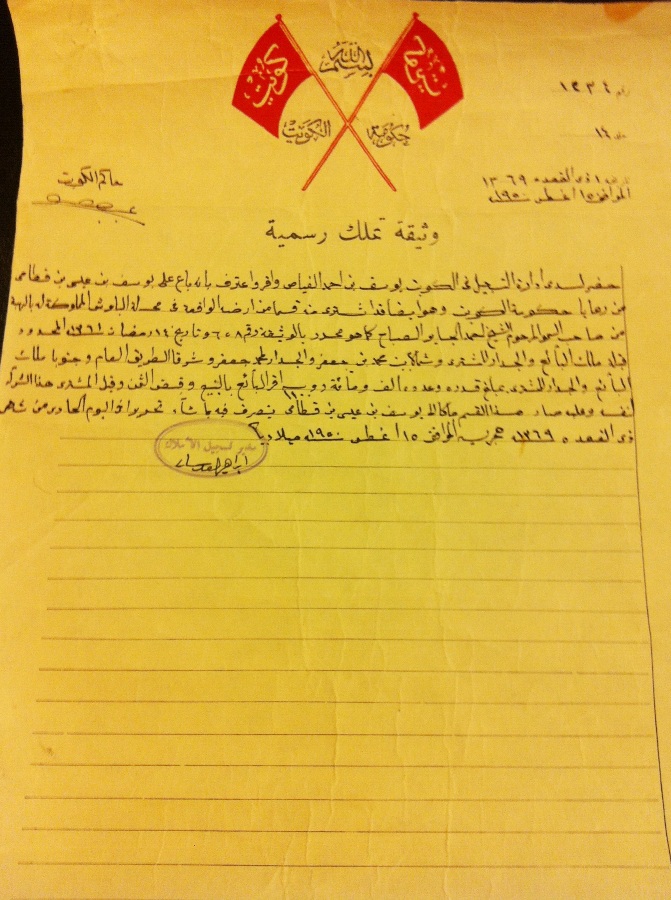 بسم الله
كويت
كويت
حكومة الكويت
رقم ١٢٣٤
١٤
حاكم الكويت
١ ذى القعده ١٣٦٩
الموافق ١٥ اغسطس ١٩٥٠
وثيقة تملك رسمية
حضر لدى ادارة التسجيل فى الكويت يوسف بن احمد الفياض واقر واعترف بانه باع على يوسف بن عيسى بن قطامى
من رعايا حكومة الكويت وهو ايضا قد اشترى منه قسما من ارضه الواقعة فى محلة المملوكة له
من صاحب السمو المرحوم الشيخ احمد الجابر الصباح كما هو محرر بالوثيقة رقم ٦٠٨ وتاريخ ١٤ رمضان ١٣٦١ المحدود
قبلة ملك البائع والجدار للمشترى وشمالا بن محمد بن جعفر والجدار لمحمد جعفر وشرقا الطريق العام وجنوبا ملك
البائع والجدار للمشترى بمبلغ قدره وعدده الف ومائة روبيه اقر البائع بالبيع وقبض الثمن وقبل المشترى هذا الشراء
لنفسه وعليه صار هذا القسم ملكا ليوسف بن عيسى بن قطامى يتصرف فيه بما شاء تحريرا فى اليوم الحادى من شهر
ذى القعده ١٣٦٩ هجريه الموافق ١٥ اغسطس ١٩٥٠ ميلاديه
مدير تسجيل الأملاك